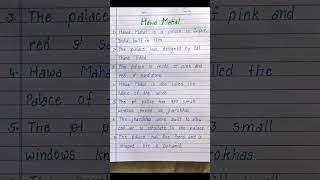 Hawa Mahal
1. Hawa Mahal is a palace in Jaipur,
India, built in 1799
2. The palace was designed by Lal
Chand Ustad
3. The palace is made of pink and
red sandstone
4. Hawa Mahal is also called the
Palace of the winds
5. The palace has 953 small
windows known as jharokhas.
6. The jharokhas were built to allow
cool air to circulate in the palace
7. The palace has five floors and is
shaped like a pyramid
3. The palace
red &
4. Hawa Mahal
Palace of
5. The pl
windows
of pink and
called the
3 small
jharokhas.